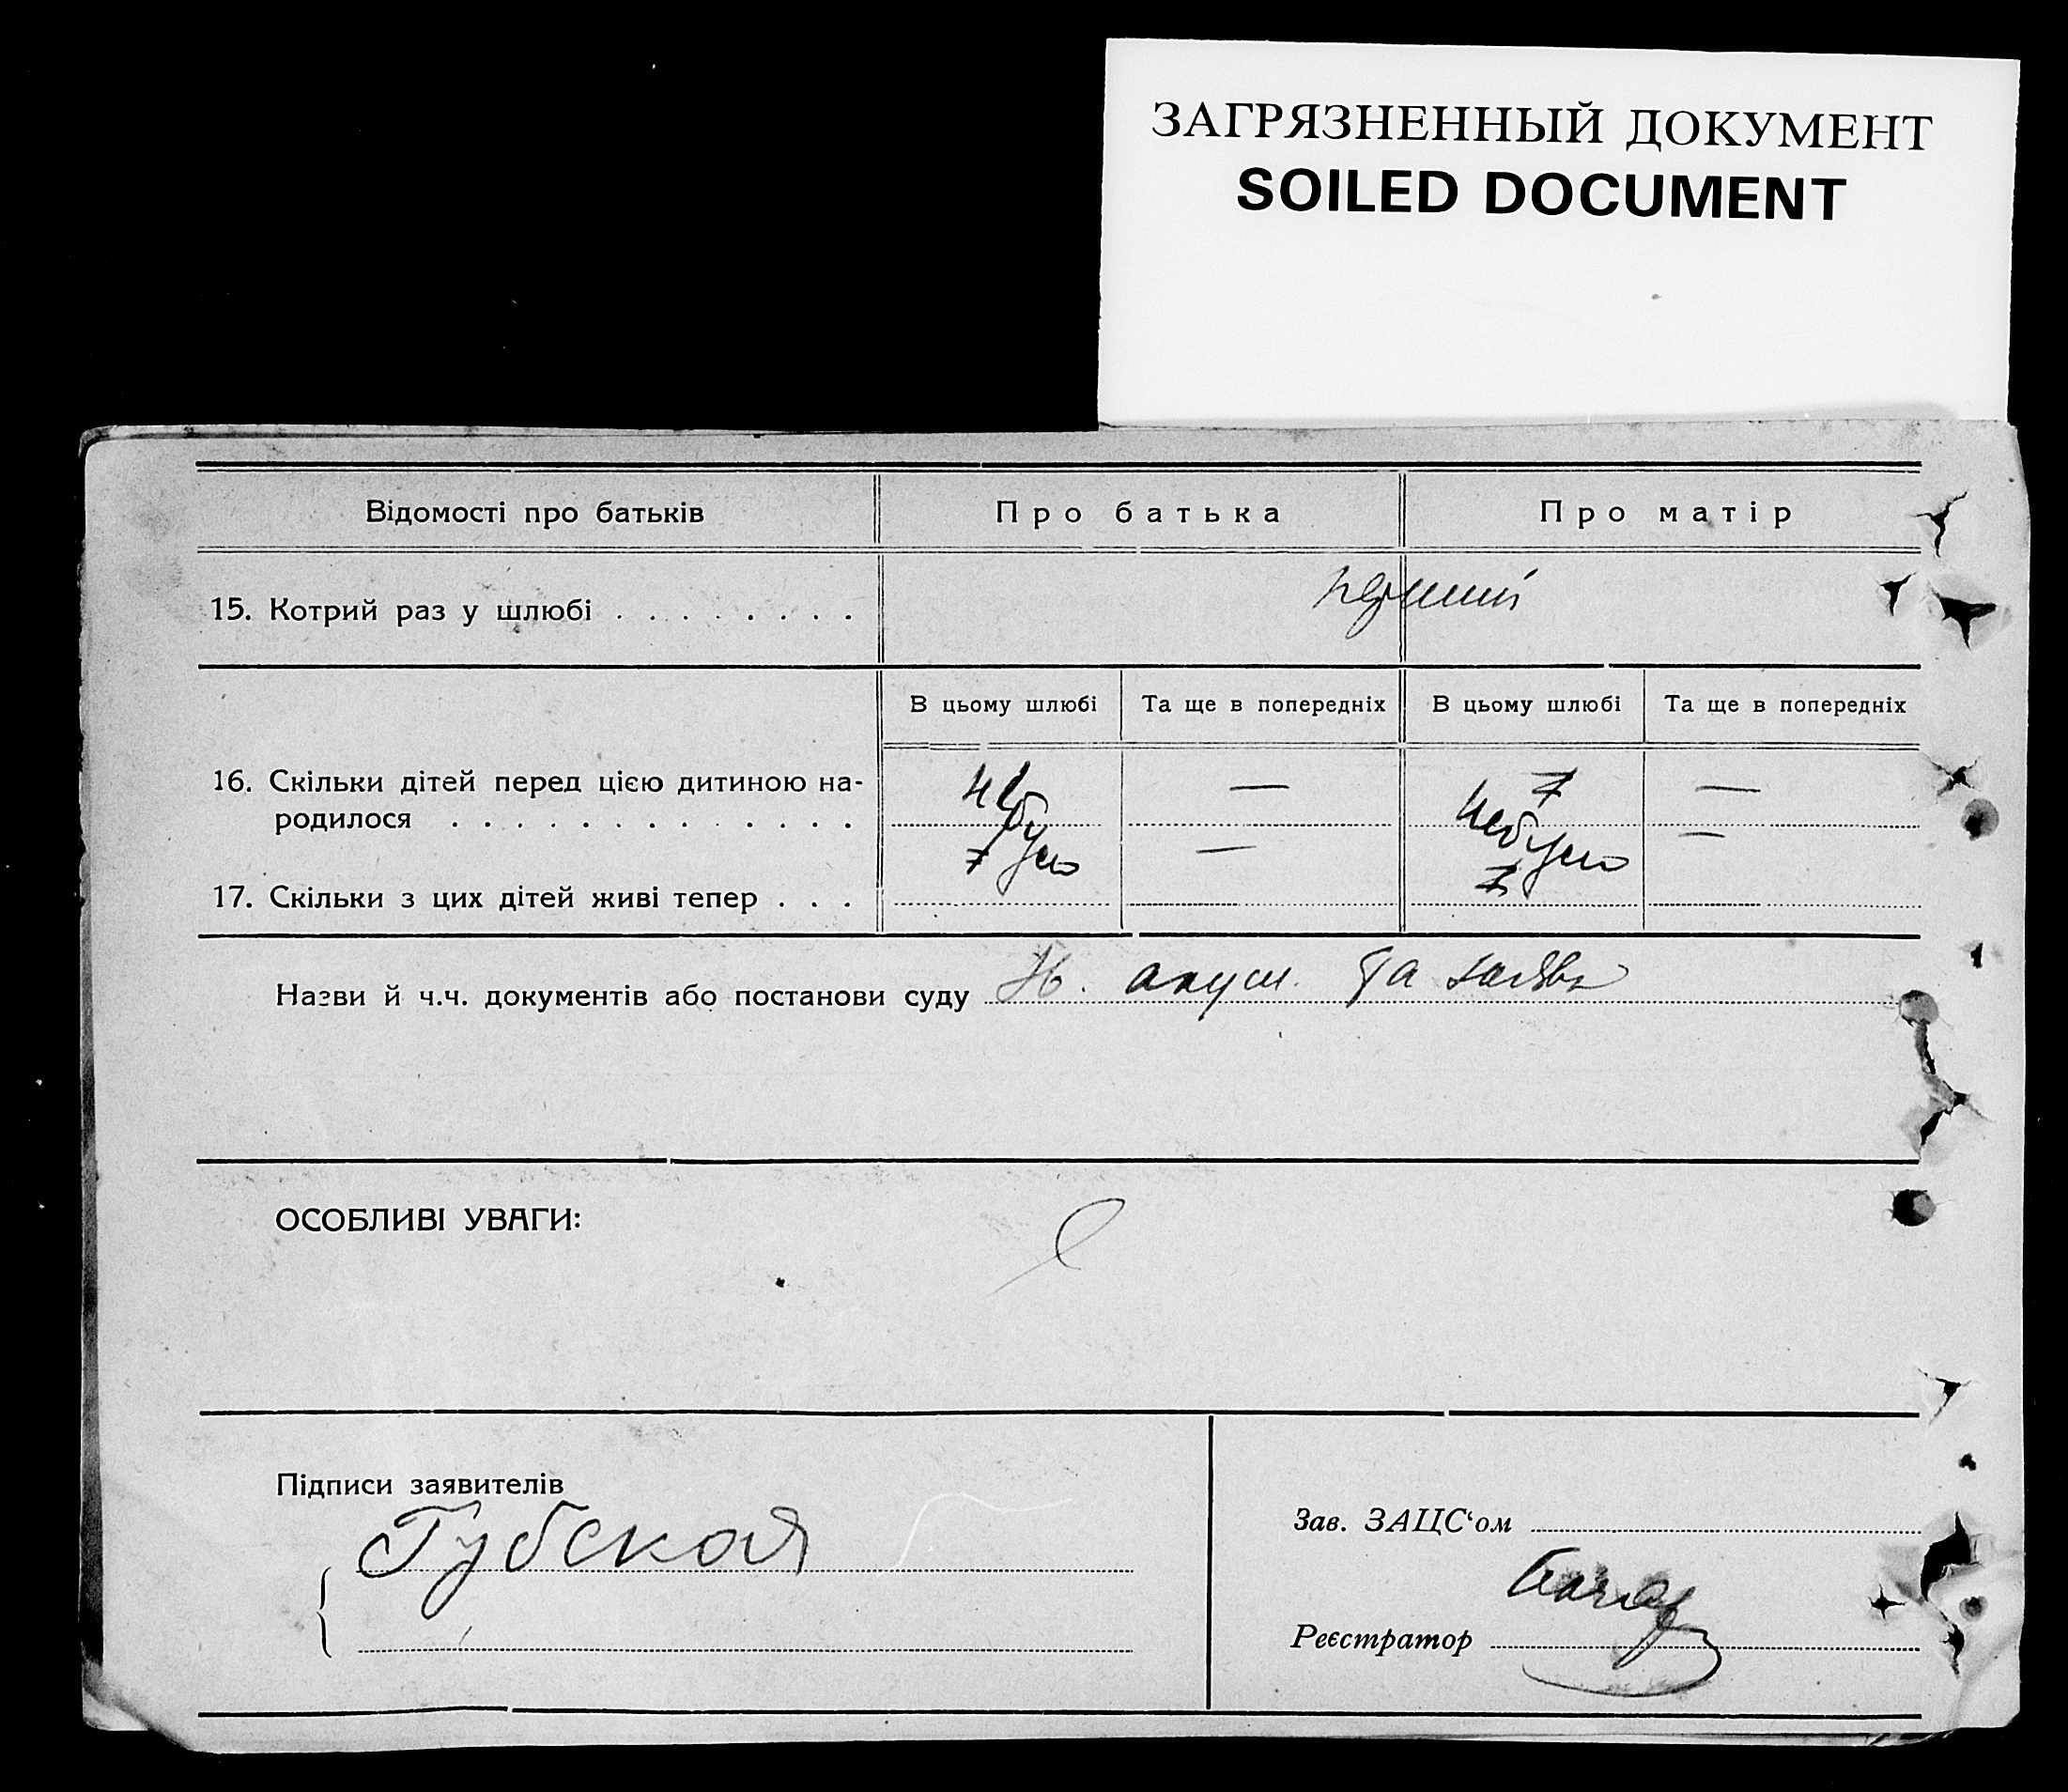 ЗАГРЯЗНЕННЫЙ ДОКУМЕНТ
SOILED DOCUMENT
Відомості про батьків Про батька Про матір
15. Котрий раз у шлюбі . . . . . . . . . перший
В цьому шлюбі Та ще в попередніх В цьому шлюбі Та ще в попередніх
16. Скільки дітей перед цією дитиною на-
родилося . . . . . . . . . . . . . . не було — не було —
17. Скільки з цих дітей живі тепер . . . — —
Назви й ч.ч. документів або постанови суду акуш. та заява
ОСОБЛИВІ УВАГИ:
Підписи заявителів
Губская
Зав. ЗАЦС‘ом
Реєстратор